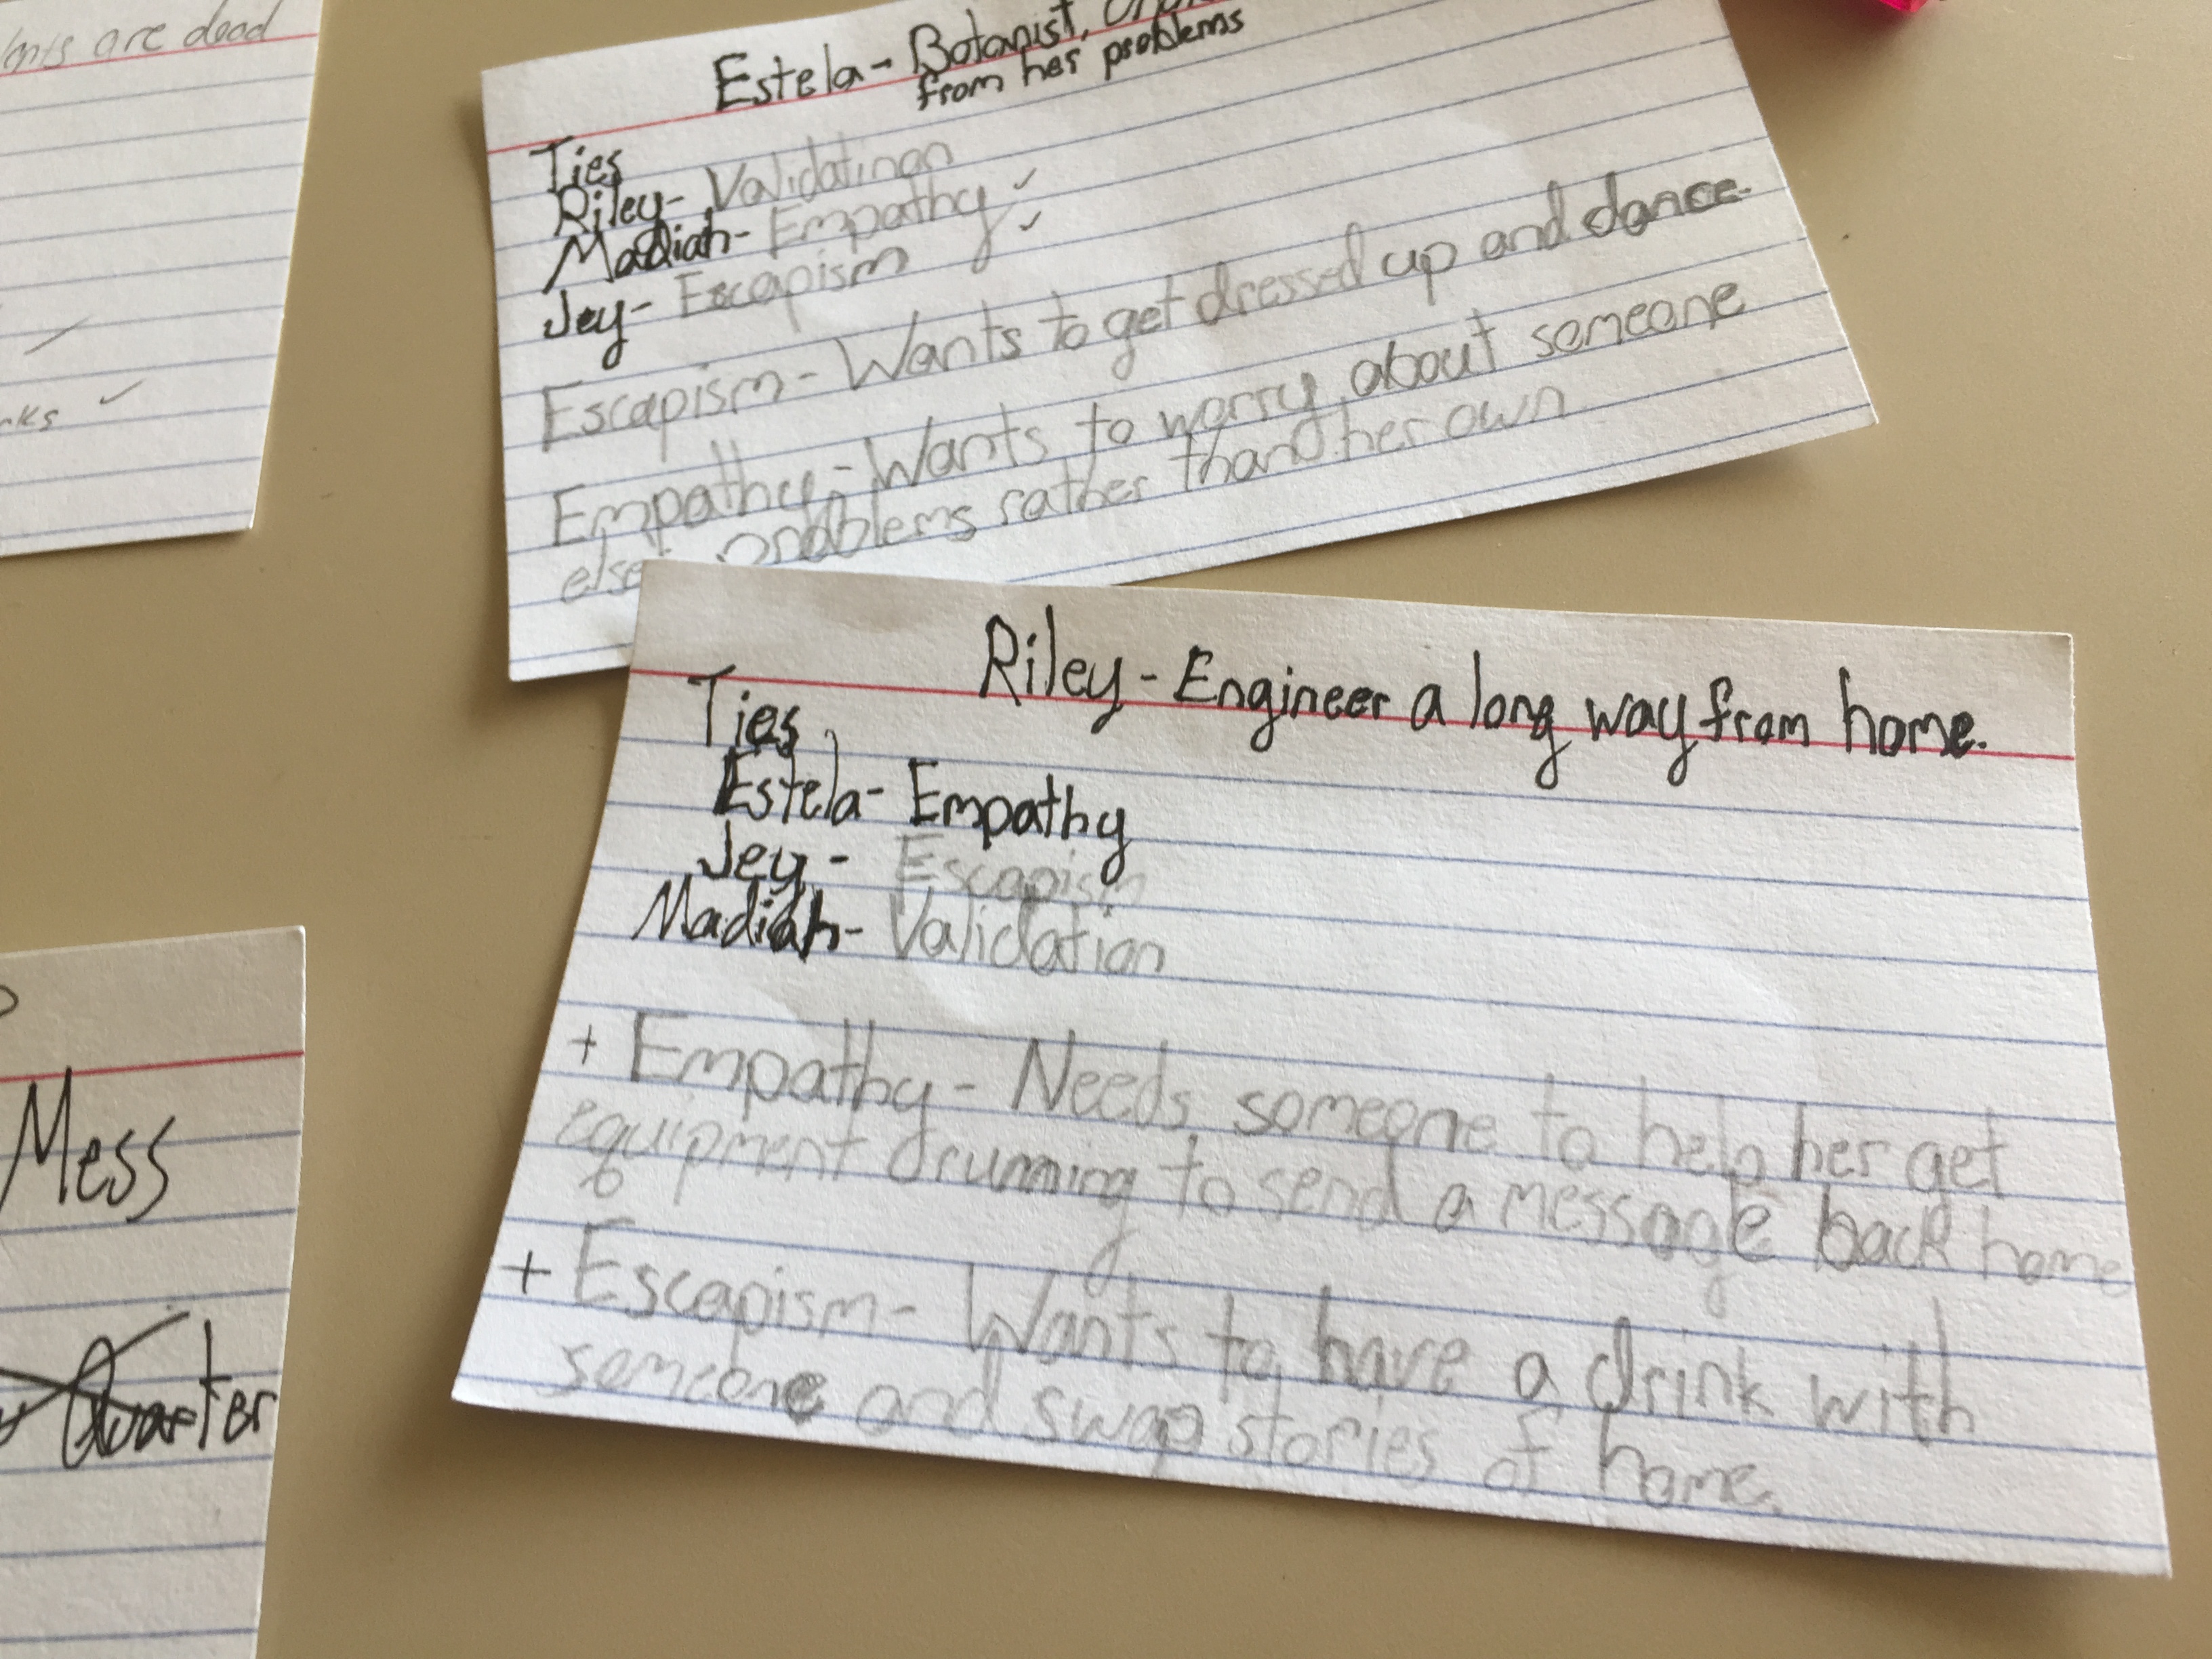 are dead
Estela - Botanist,
from her problems
Ties
Riley - Validatinon
Madiah - Empathy ✓
Jey - Escapism ✓
Escapism - Wants to get dressed up and dance.
Empathy - Wants to worry about someone
problems rather than her own
Riley - Engineer a long way from home.
Ties
Estela - Empathy
Jey - Escapism
Madiah - Validation
+ Empathy - Needs someone to help her get
equipment drunning to send a message back home
+ Escapism - Wants to have a drink with
someone and swap stories of home.
Mess
Quarter